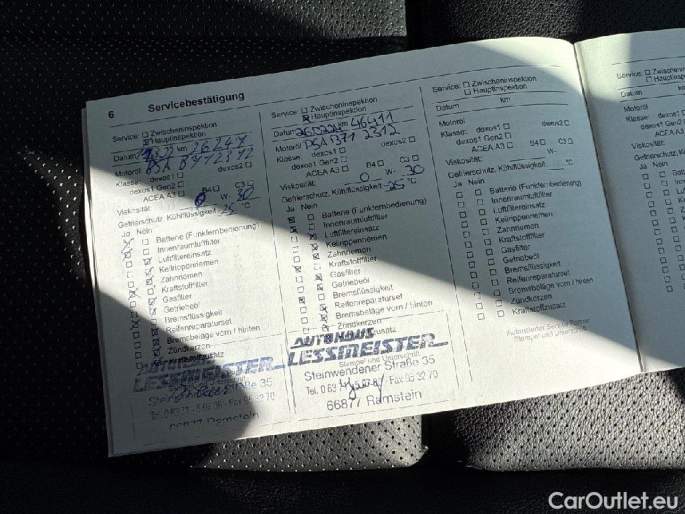 6 Servicebestätigung
Service: ☐ Zwischeninspektion
Hauptinspektion
Datum km 36247
Motoröl PSA B712312
Klasse: dexos1 ☐ dexos2 ☐
dexos1 Gen2 ☐
ACEA A3 ☐ B4 ☐ C3
Viskosität: 0 W-
Gefrierschutz, Kühlflüssigkeit -25 °C
Ja Nein
Batterie (Funkfernbedienung)
Innenraumluftfilter
Luftfiltereinsatz
Keilrippenriemen
Zahnriemen
Kraftstofffilter
Gasfilter
Getriebeöl
Bremsflüssigkeit
Reifenreparaturset
Bremsbeläge vorn / hinten
Zündkerzen
AUTOHAUS
LESSMEISTER
Steinwendener Straße 35
66877 Ramstein
Service: ☐ Zwischeninspektion
Hauptinspektion
Datum km 46411
Motoröl PSA B71 2312
Klasse: dexos1 ☐ dexos2 ☐
dexos1 Gen2 ☐
ACEA A3 ☐ B4 ☐ C3 ☐
Viskosität: 0 W- 30
Gefrierschutz, Kühlflüssigkeit -25 °C
Ja Nein
Batterie (Funkfernbedienung)
Innenraumluftfilter
Luftfiltereinsatz
Keilrippenriemen
Zahnriemen
Kraftstofffilter
Gasfilter
Getriebeöl
Bremsflüssigkeit
Reifenreparaturset
Bremsbeläge vorn / hinten
Zündkerzen
AUTOHAUS
LESSMEISTER
Stempel und Unterschrift
Steinwendener Straße 35
66877 Ramstein
Service: ☐ Zwischeninspektion
☐ Hauptinspektion
Datum km
Motoröl
Klasse: dexos1 ☐ dexos2 ☐
dexos1 Gen2 ☐
ACEA A3 ☐ B4 ☐ C3 ☐
Viskosität: W-
Gefrierschutz, Kühlflüssigkeit °C
Ja Nein
☐ ☐ Batterie (Funkfernbedienung)
☐ ☐ Innenraumluftfilter
☐ ☐ Luftfiltereinsatz
☐ ☐ Keilrippenriemen
☐ ☐ Zahnriemen
☐ ☐ Kraftstofffilter
☐ ☐ Gasfilter
☐ ☐ Getriebeöl
☐ ☐ Bremsflüssigkeit
☐ ☐ Reifenreparaturset
☐ ☐ Bremsbeläge vorn / hinten
☐ ☐ Zündkerzen
☐ ☐ Kraftstoffzusatz
Autorisierter Service Partner
Stempel und Unterschrift
Service: ☐ Zwischeninspektion
☐ Hauptinspektion
Datum
Motoröl
Klasse: dexos1
dexos1 Gen2
ACEA A3
Viskosität:
Gefrierschutz
Ja Nein
CarOutlet.eu